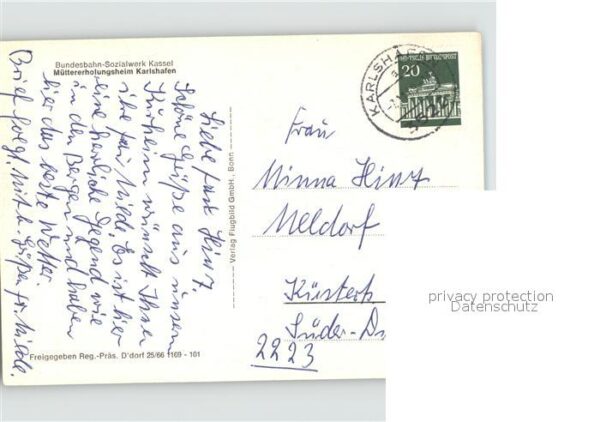 Bundesbahn-Sozialwerk Kassel
Müttererholungsheim Karlshafen
Liebe Frau Hinz.
Schöne Grüße aus unserem
Kurheim wünscht Ihnen
ihre Frau Milde. Es ist hier
eine herrliche Gegend wie
in den Bergen und haben
hier das beste Wetter.
Brief folgt. Mit h. Grüßen Fr. Milde.
Verlag Flugbild GmbH., Bonn
Freigegeben Reg.-Präs. D'dorf 25/66 1169 - 101
KARLSHAF
DEUTSCHE BUNDESPOST
20
Frau
Minna Hinz
Meldorf
Süder-
2223
privacy protection
Datenschutz